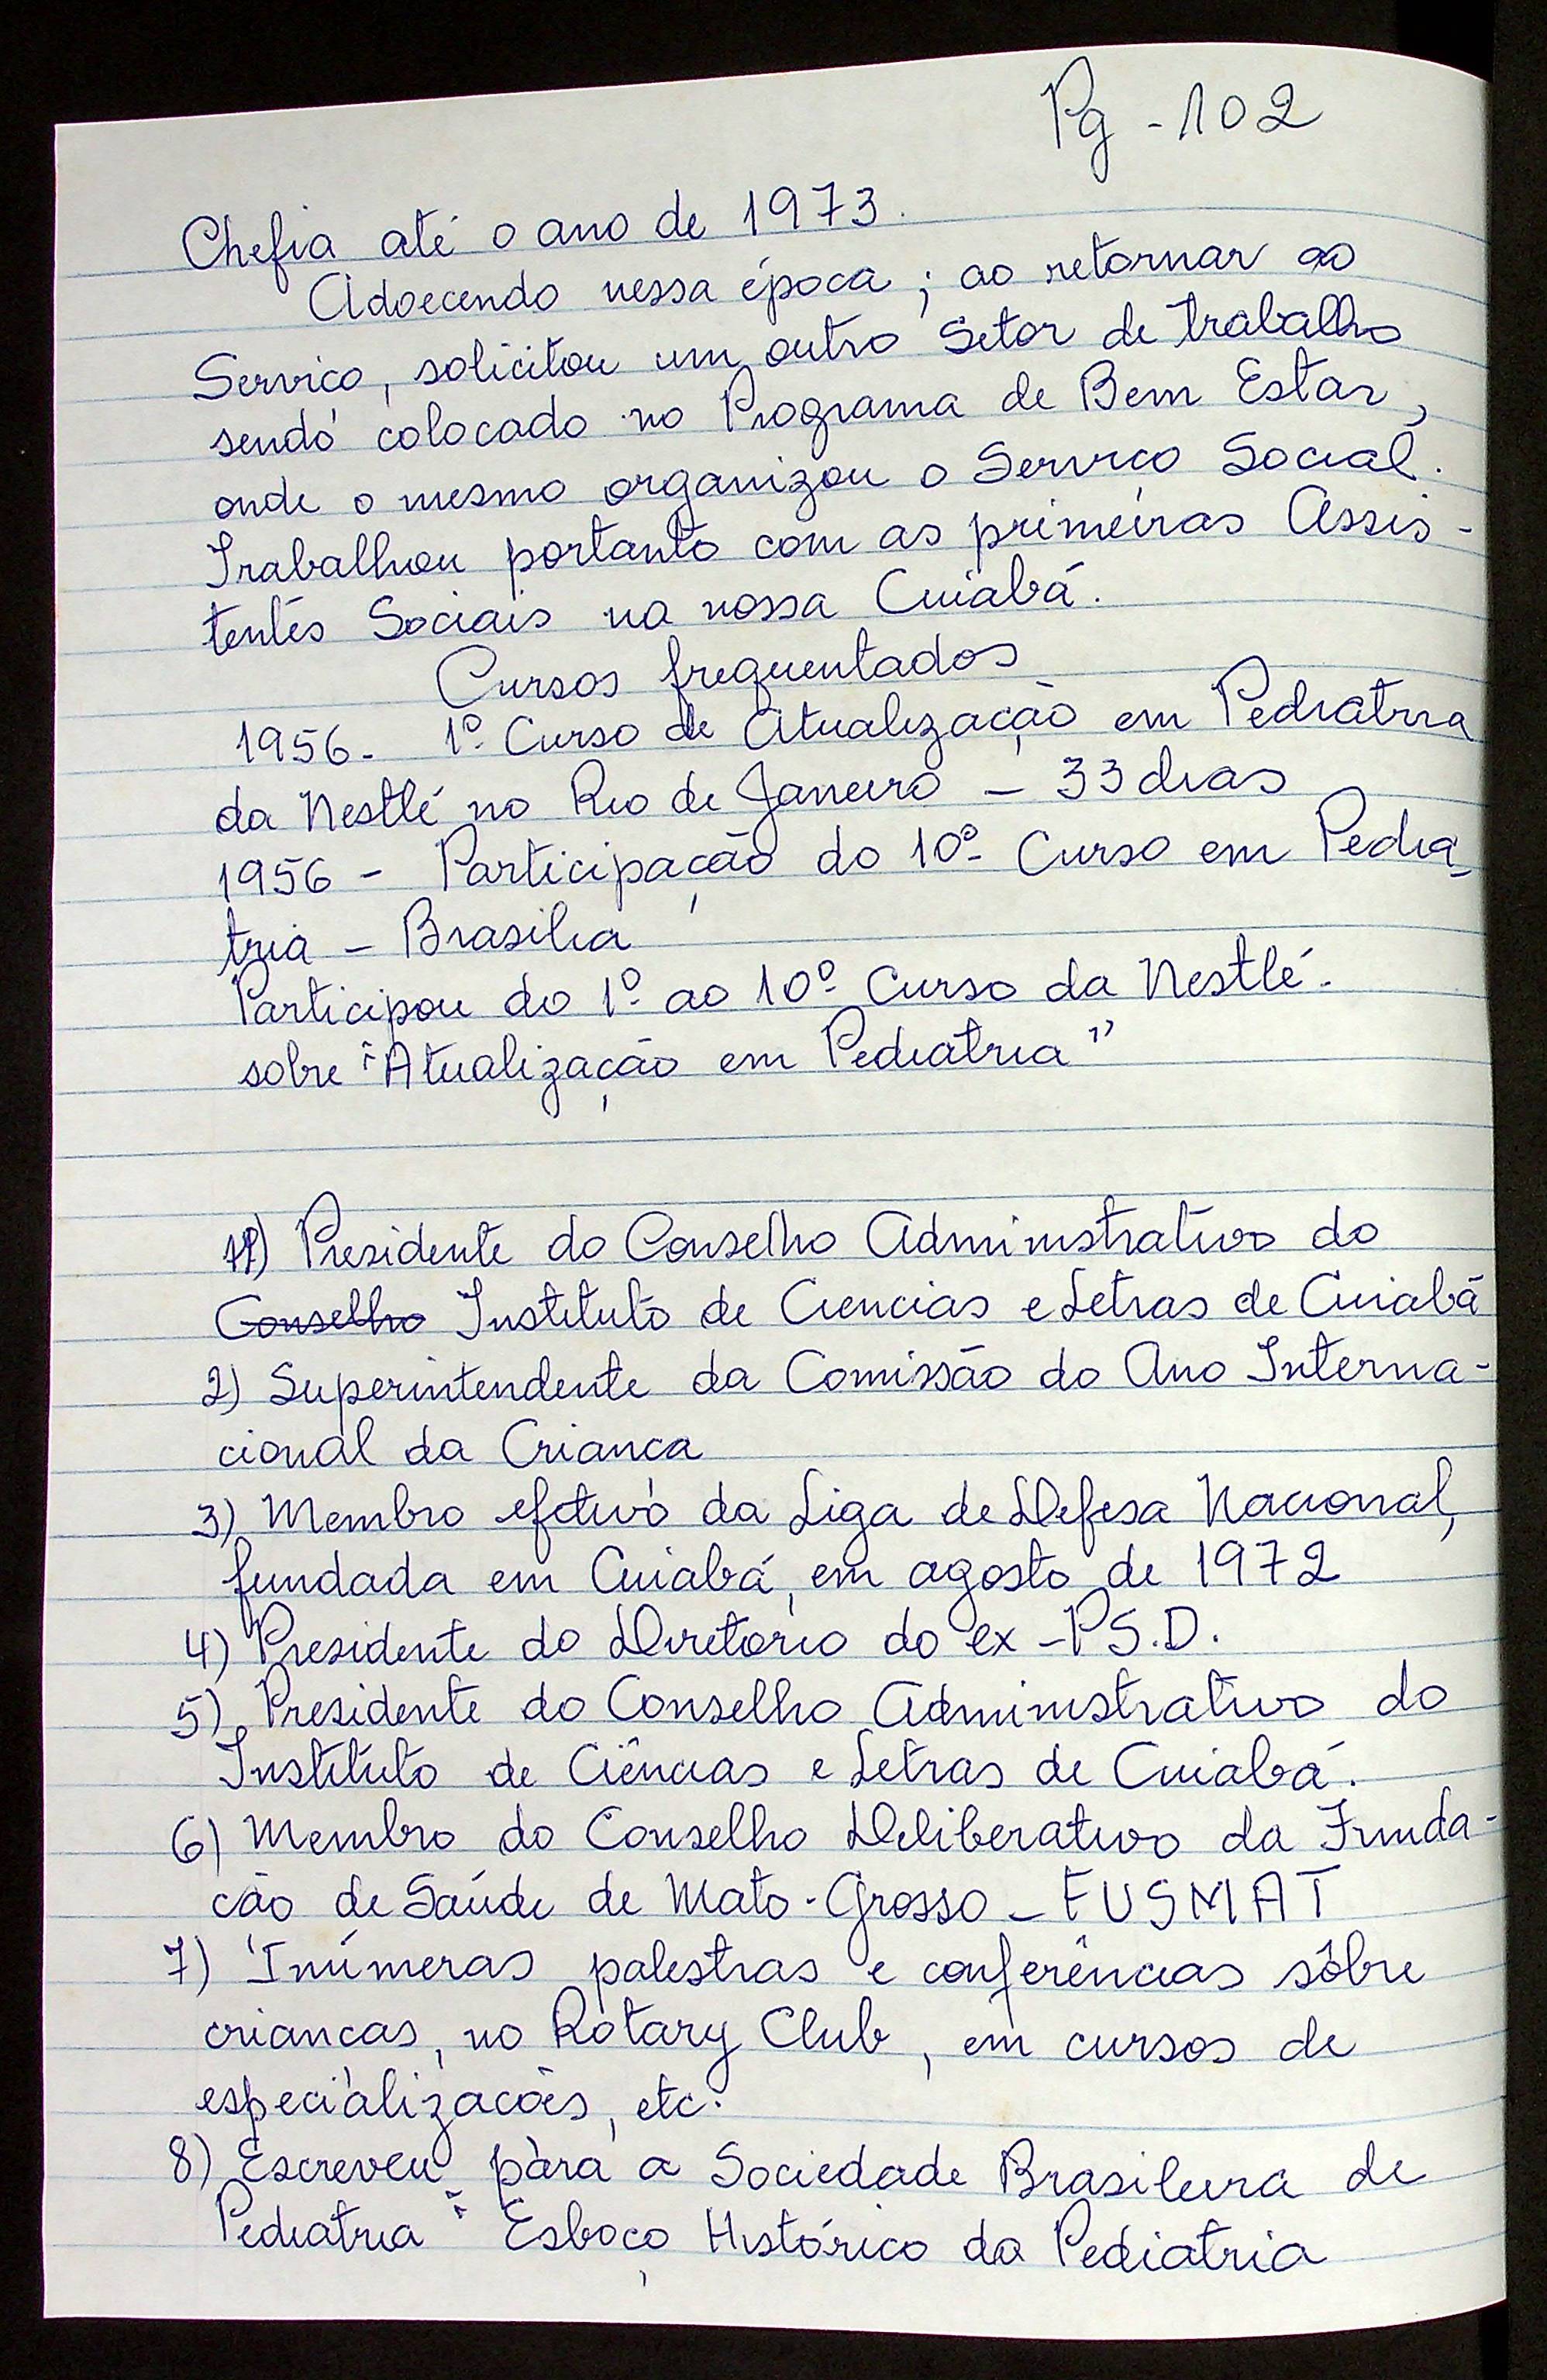 Pg - 102
Chefia até o ano de 1973.
Adoecendo nessa época; ao retornar ao
Serviço, solicitou um outro Setor de trabalho
sendo colocado no Programa de Bem Estar,
onde o mesmo organizou o Serviço Social.
Trabalhou portanto com as primeiras Assis-
tentes Sociais na nossa Cuiabá.
Cursos frequentados
1956 - 1º Curso de Atualização em Pediatria
da Nestlé no Rio de Janeiro - 33 dias
1956 - Participação do 10º Curso em Pedia-
tria - Brasilia
Participou do 1º ao 10º Curso da Nestlé.
sobre "Atualização em Pediatria"
1º) Presidente do Conselho Administrativo do
Conselho Instituto de Ciencias e Letras de Cuiabá
2) Superintendente da Comissão do Ano Interna-
cional da Criança
3) Membro efetivo da Liga de Defesa Nacional,
fundada em Cuiabá, em agosto de 1972
4) Presidente do Diretorio do ex-PS.D.
5) Presidente do Conselho Administrativo do
Instituto de Ciências e Letras de Cuiabá.
6) Membro do Conselho Deliberativo da Funda-
ção de Saúde de Mato-Grosso - FUSMAT
7) Inúmeras palestras e conferências sôbre
crianças, no Rotary Club, em cursos de
especializações, etc.
8) Escreveu para a Sociedade Brasileira de
Pediatria "Esboço Histórico da Pediatria